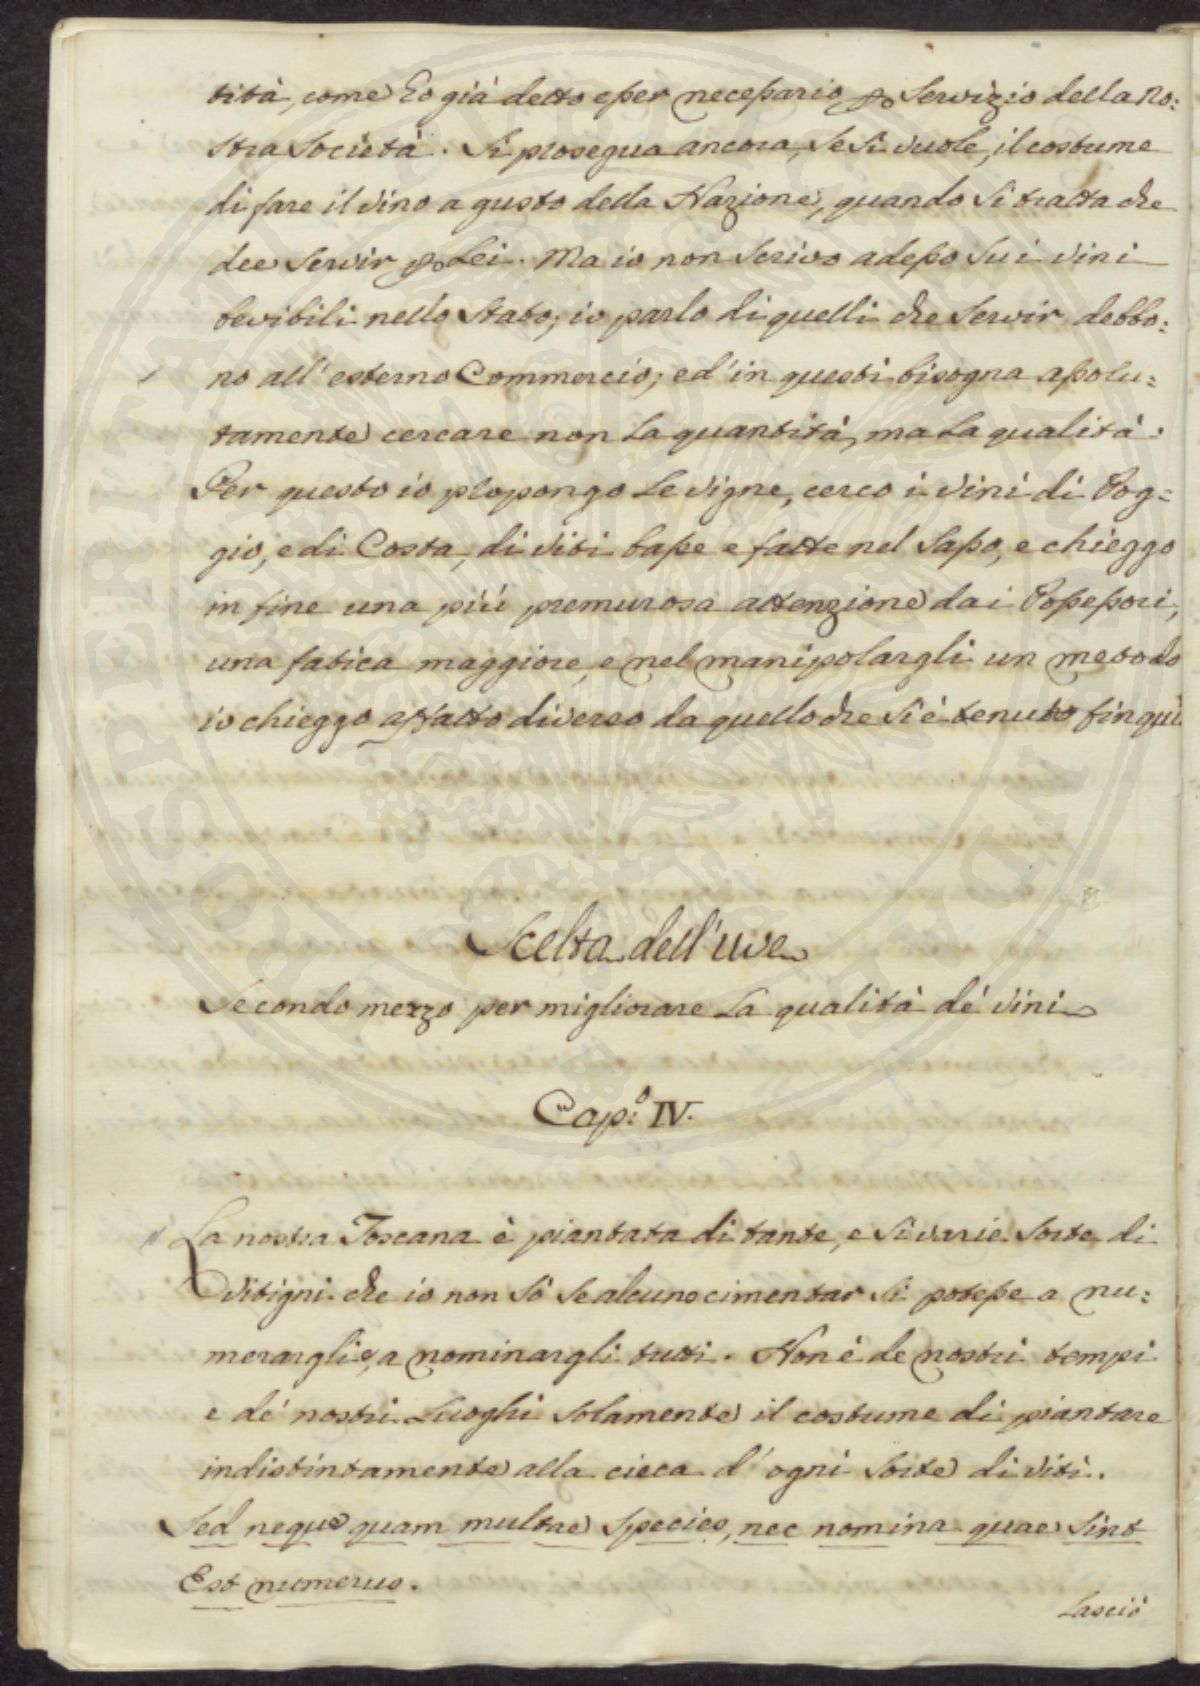 tità, come Ho già detto e per necessario p Servizio della No:
stra Società. Si prosegua ancora, se si vuole, il costume
di fare il vino a gusto della Nazione, quando si tratta che
dee servir p Lei. Ma io non scrivo adesso su i vini
bevibili nello Stato; io parlo di quelli che servir debbo:
no all' esterno Commercio; ed' in questi bisogna assolu:
tamente cercare non la quantità, ma la qualità.
Per questo io propongo le vigne, cerco i vini di Pog=
gio, e di Costa, di viti basse e fatte nel Sasso, e chieggo
in fine una più premurosa attenzione dai Possessori,
una fatica maggiore, e nel manipolargli un metodo
io chieggo affatto diverso da quello che si è tenuto fin quì
Scelta dell' uve
Secondo mezzo per migliorare la qualità de' vini
Cap.º IV.
La nostra Toscana è piantata di tante, e sì varie sorte di
Vitigni che io non sò se alcuno cimentar si potesse a nu:
merargli, e a nominargli tutti. Non è de nostri tempi
e de' nostri Luoghi solamente il costume di piantare
indistintamente alla cieca d' ogni sorte di viti.
Sed neque quam multae species, nec nomina quae sint
Est numerus.
Lasciò